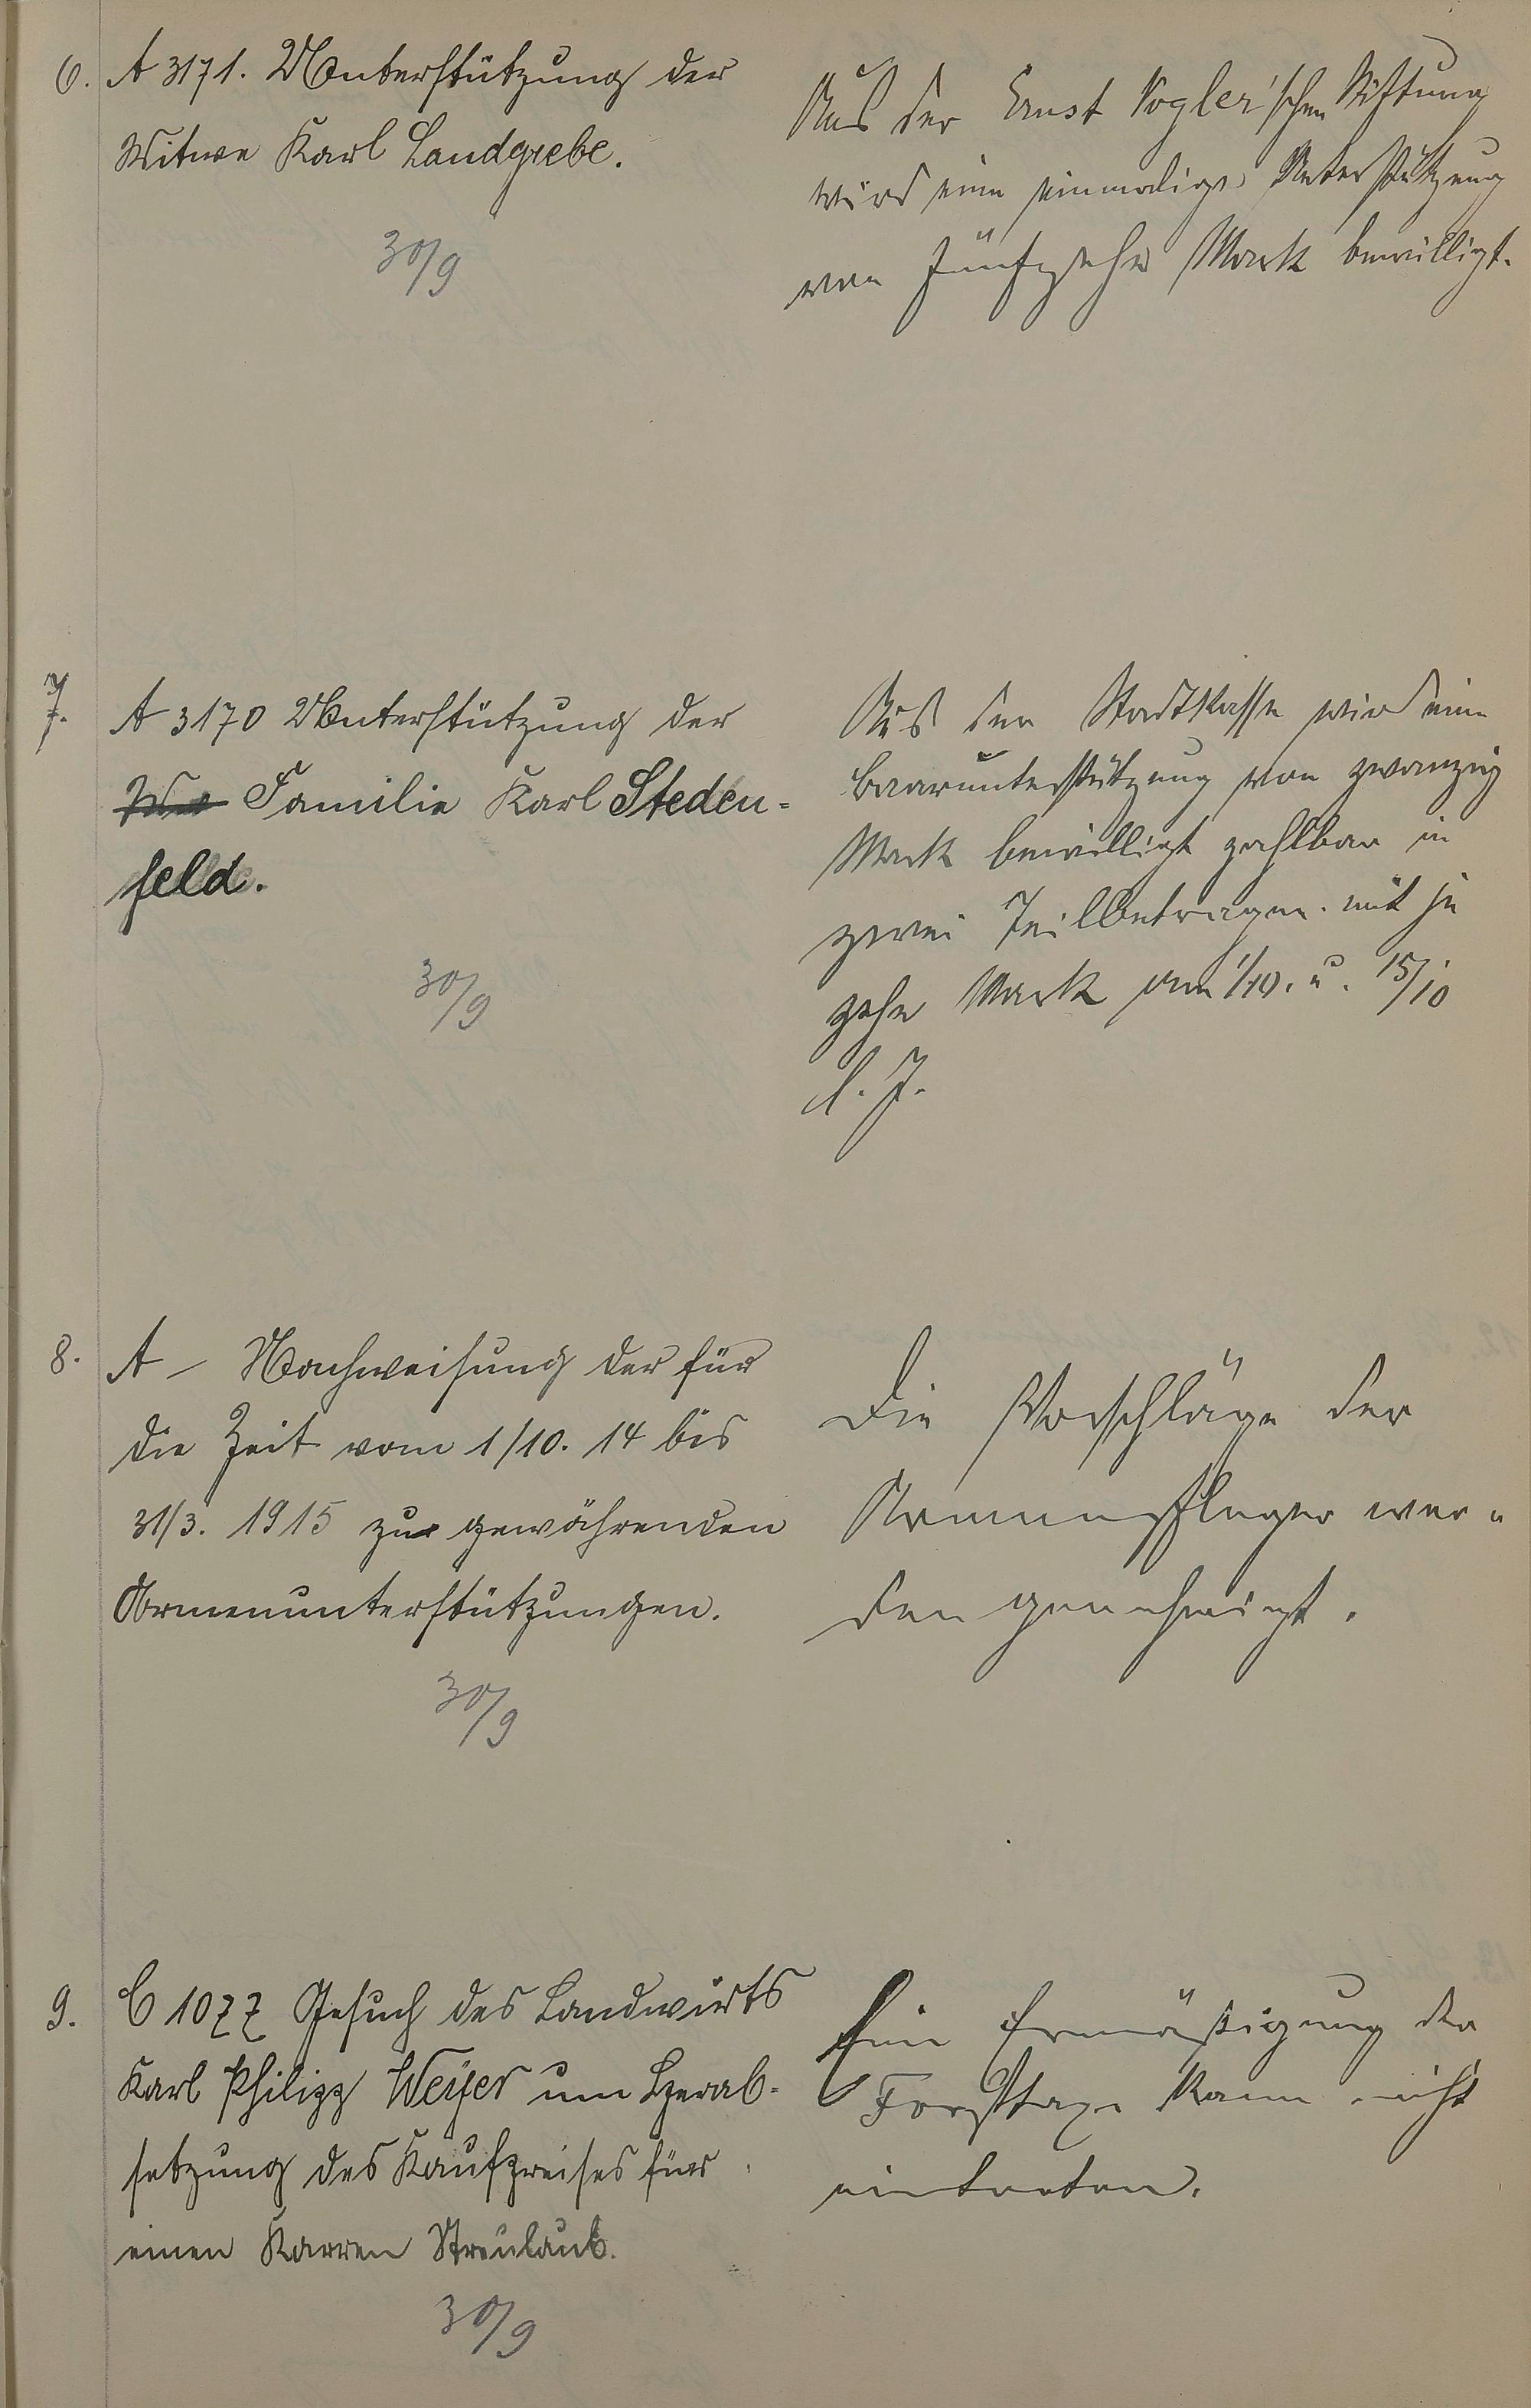 6. A 3171. Unterstützung der
Witwe Karl Landgrebe.
30/9
Aus der Ernst Vogler'schen Stiftung
wird eine einmalige Unterstützung
von Fünfzehn Mark bewilligt.
7. A 3170 Unterstützung der
Familie Karl Steden-
feld.
30/9
Aus der Stadtkasse wird eine
Baarunterstützung von zwanzig
Mark bewilligt zahlbar in
zwei Teilbetragen mit je
zehn Mark am 1/10. u. 15/10
l. J.
8. A - Nachweisung der für
die Zeit vom 1/10. 14 bis
31/3. 1915 zu gewährenden
Armenunterstützungen.
30/9
Die Vorschläge der
Armenpfleger wer-
den genehmigt.
9. C 1077 Gesuch des Landwirts
Karl Philipp Weyer um Herab-
setzung des Kaufpreises für
einen Karren Streulaub.
30/9
Eine Ermäßigung der
Forsttaxe kann nicht
eintreten.